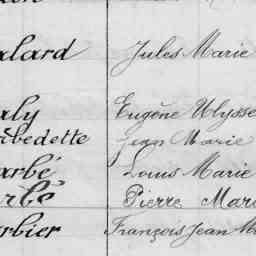 alard Jules Marie
aly Eugène Ulysse
rbedette Jean Marie
arbé Louis Marie
arbé Pierre Mari
rbier François Jean M